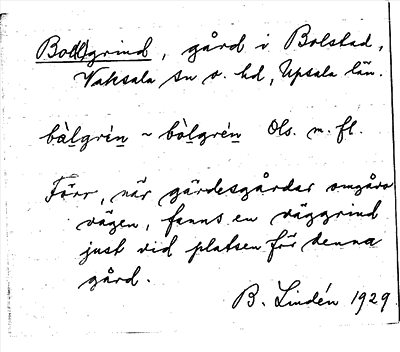 Bol(l)grind, gård i Bolstad,
Vaksala sn o. hd, Upsala län.
bòlgrén ~ bòlgrén Ols. m. fl.
Förr, när gärdesgårdar omgåvo
vägen, fanns en väggrind
just vid platsen för denna
gård.
B. Lindén 1929.